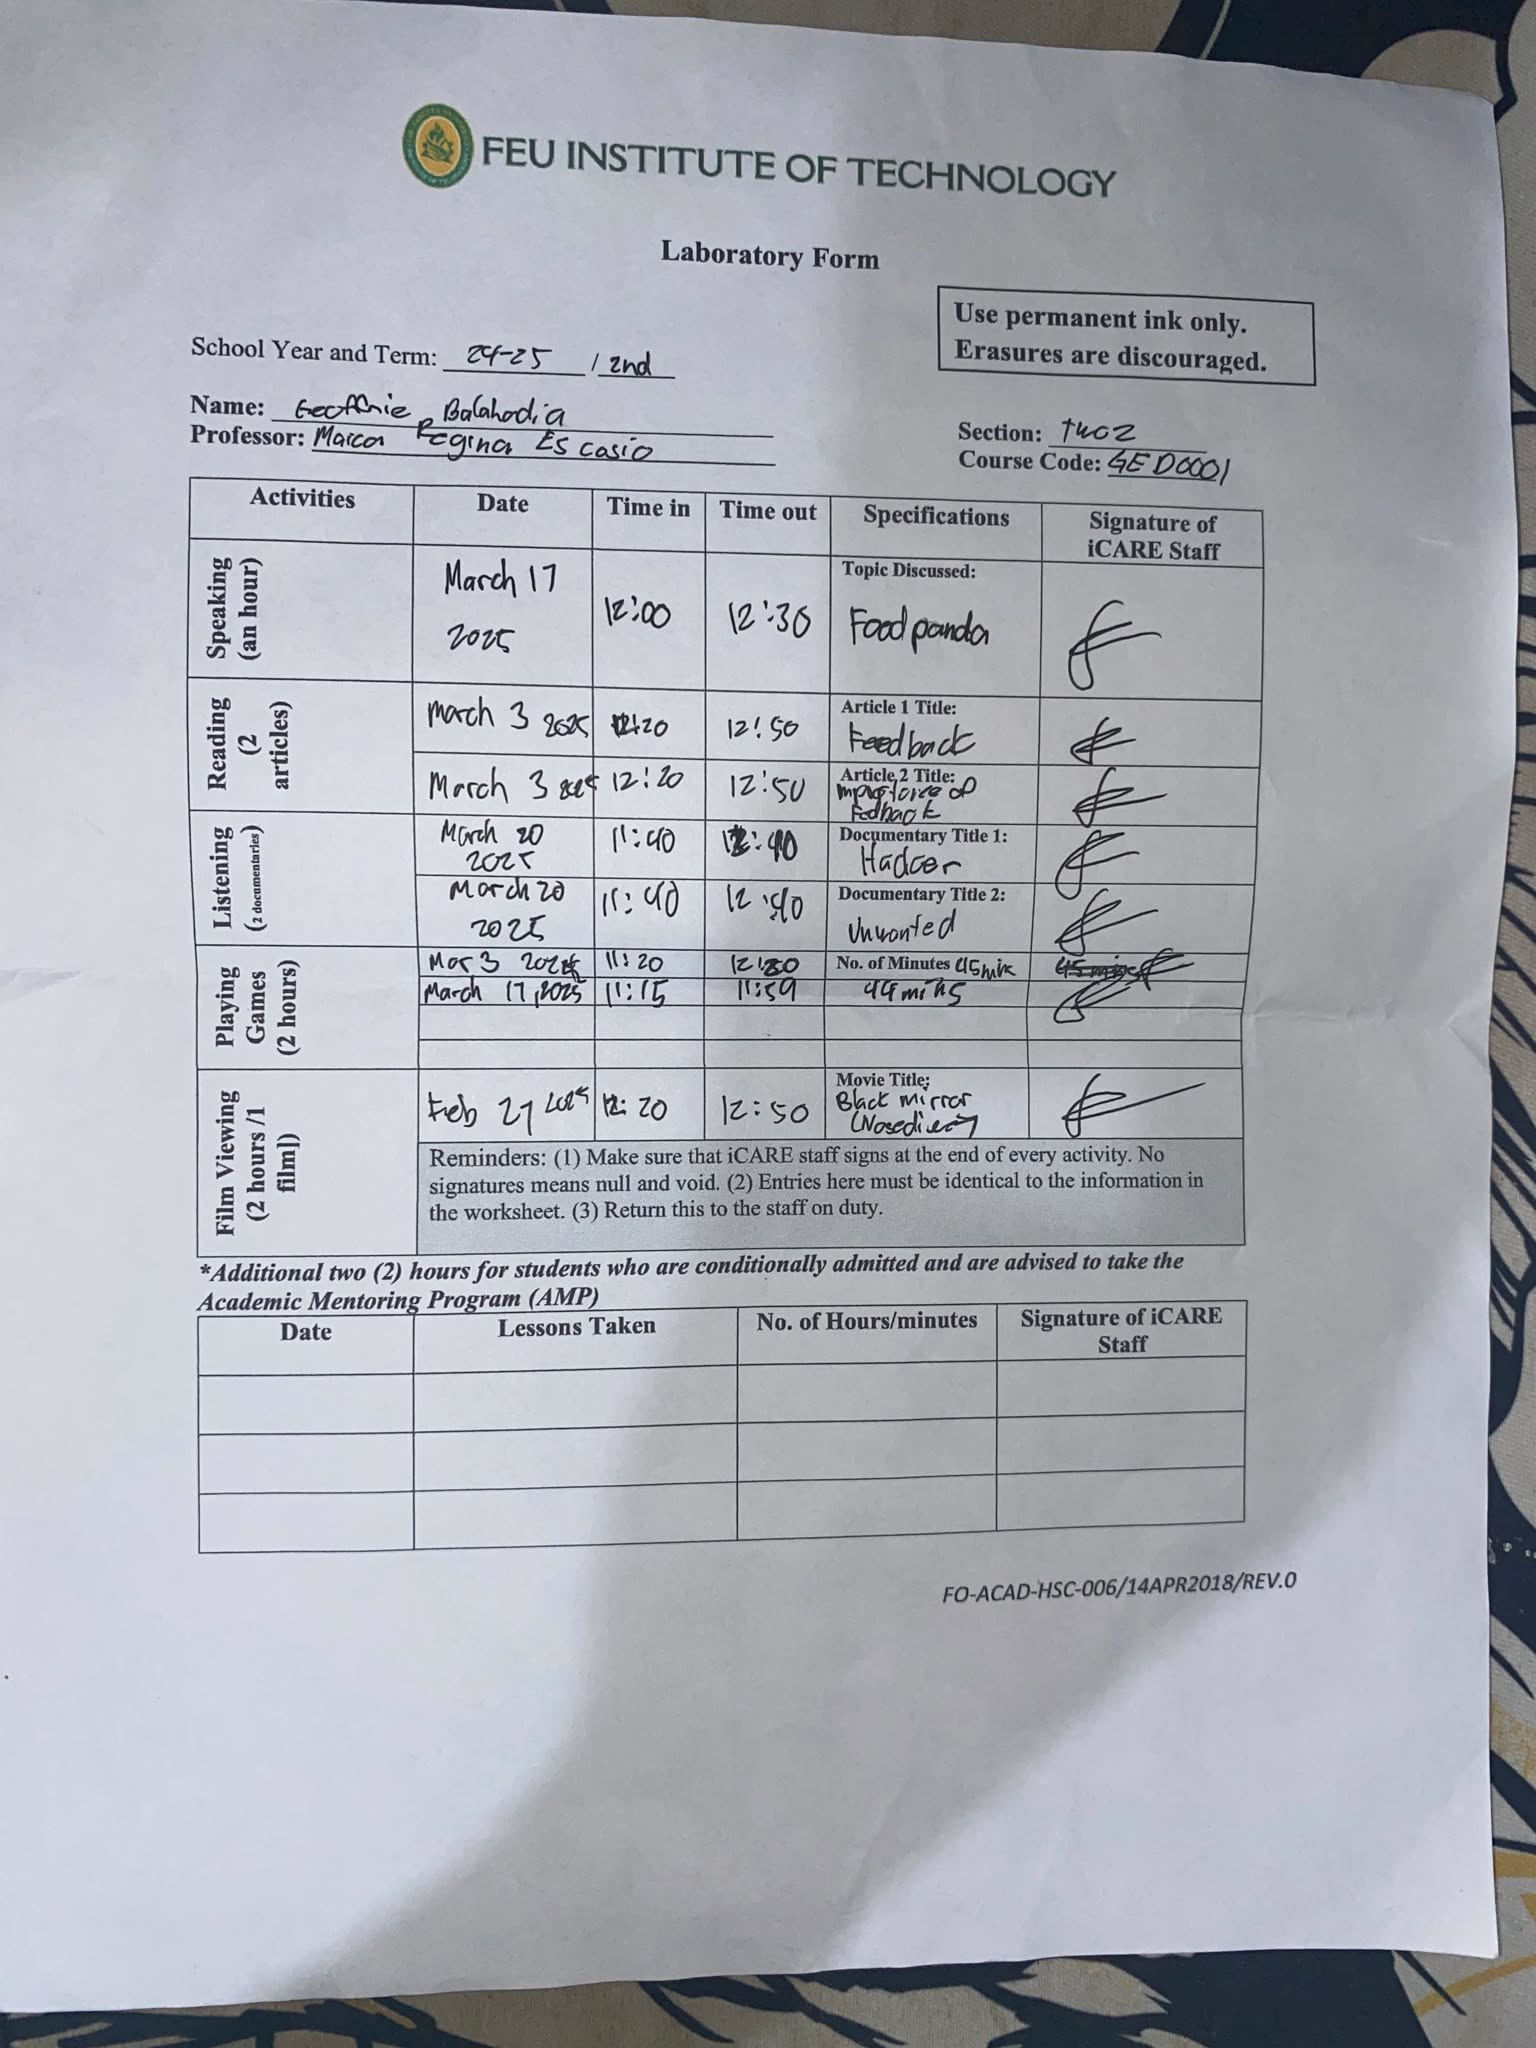 FEU INSTITUTE OF TECHNOLOGY
Laboratory Form
Use permanent ink only.
Erasures are discouraged.
School Year and Term: 24-25 / 2nd
Name: Balahadia
Professor: Regina Escasio
Section: TW02
Course Code: GED0001
Activities Date Time in Time out Specifications Signature of iCARE Staff
Speaking (an hour)
March 17 2025 12:00 12:30 Topic Discussed: Food panda
Reading (2 articles)
March 3 2025 12:20 12:50 Article 1 Title: Feedback
March 3 12:20 12:50 Article 2 Title: of
Listening (2 documentaries)
March 20 2025 11:40 12:40 Documentary Title 1:
March 20 2025 11:40 12:40 Documentary Title 2: Unwanted
Playing Games (2 hours)
Mar 3 11:20 No. of Minutes 45 min
March 17, 2025 11:15 11:59 44 mins
Film Viewing (2 hours /1 film])
Feb 12:20 12:50 Movie Title: Black mirror
(Nosedive)
Reminders: (1) Make sure that iCARE staff signs at the end of every activity. No
signatures means null and void. (2) Entries here must be identical to the information in
the worksheet. (3) Return this to the staff on duty.
*Additional two (2) hours for students who are conditionally admitted and are advised to take the
Academic Mentoring Program (AMP)
Date Lessons Taken No. of Hours/minutes Signature of iCARE Staff
FO-ACAD-HSC-006/14APR2018/REV.0